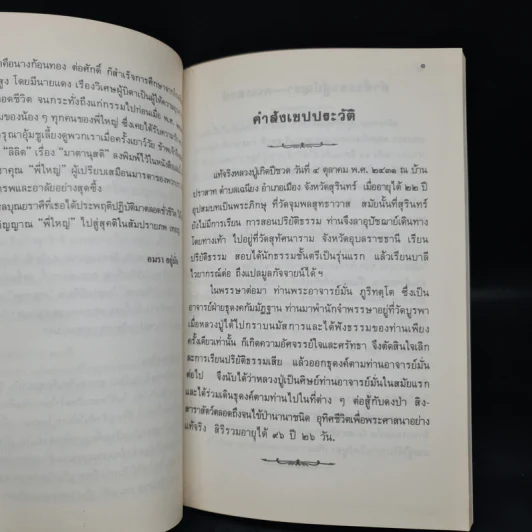 คือนางก้อนทอง ต่อศักดิ์ ก็สำเร็จการศึกษา
สูง โดยมีนายแดง เรืองวิเศษผู้บิดาเป็นผู้ให้
ตลอดชีวิต จนกระทั่งถึงแก่กรรมไปก่อนเมื่อ พ.ศ.
ของน้อง ๆ ทุกคนของพี่ใหญ่ ซึ่งเคยได้รับความ
กรุณาอุ้มชูเลี้ยงดูพวกเราเมื่อครั้งเยาว์วัย
"ลิลิต" เรื่อง "มาตานุสติ" ลงพิมพ์ไว้ในหนังสือ
คุณ "พี่ใหญ่" ผู้เปรียบเสมือนมารดาของพวก
เคารพและอาลัยอย่างสุดซึ้ง
ผลบุญยราศีที่เธอได้ประพฤติปฏิบัติมาตลอดชั่วชีวิต
วิญญาณ "พี่ใหญ่" ไปสู่สุคติในสัมปรายภพ
อมรา
๑
คำสังเขปประวัติ
แท้จริงหลวงปู่เกิดปีชวด วันที่ ๔ ตุลาคม พ.ศ. ๒๔๓๑ ณ บ้าน
ปราสาท ตำบลเฉนียง อำเภอเมือง จังหวัดสุรินทร์ เมื่ออายุได้ ๒๒ ปี
อุปสมบทเป็นพระภิกษุ ที่วัดจุมพลสุทธาวาส สมัยนั้นที่สุรินทร์
ยังไม่มีการเรียน การสอนปริยัติธรรม ท่านจึงลาอุปัชฌาย์เดินทาง
โดยทางเท้า ไปอยู่ที่วัดสุทัศนาราม จังหวัดอุบลราชธานี เรียน
ปริยัติธรรม สอบได้นักธรรมชั้นตรีเป็นรุ่นแรก แล้วเรียนบาลี
ไวยากรณ์ต่อ ถึงแปลมูลกัจจายน์ได้ ฯ
ในพรรษาต่อมา ท่านพระอาจารย์มั่น ภูริทตฺโต ซึ่งเป็น
อาจารย์ฝ่ายธุดงคกัมมัฏฐาน ท่านมาพำนักจำพรรษาอยู่ที่วัดบูรพา
เมื่อหลวงปู่ได้ไปกราบนมัสการและได้ฟังธรรมของท่านเพียง
ครั้งเดียวเท่านั้น ก็เกิดความอัศจรรย์ใจและศรัทธา จึงตัดสินใจเลิก
ละการเรียนปริยัติธรรมเสีย แล้วออกธุดงค์ตามท่านอาจารย์มั่น
ต่อไป จึงนับได้ว่าหลวงปู่เป็นศิษย์ท่านอาจารย์มั่นในสมัยแรก
และได้ร่วมเดินธุดงค์ตามท่านไปในที่ต่าง ๆ ต่อสู้กับดงป่า สิง-
สาราสัตว์ตลอดถึงจนไข้ป่านานาชนิด อุทิศชีวิตเพื่อพระศาสนาอย่าง
แท้จริง สิริรวมอายุได้ ๙๖ ปี ๒๖ วัน.